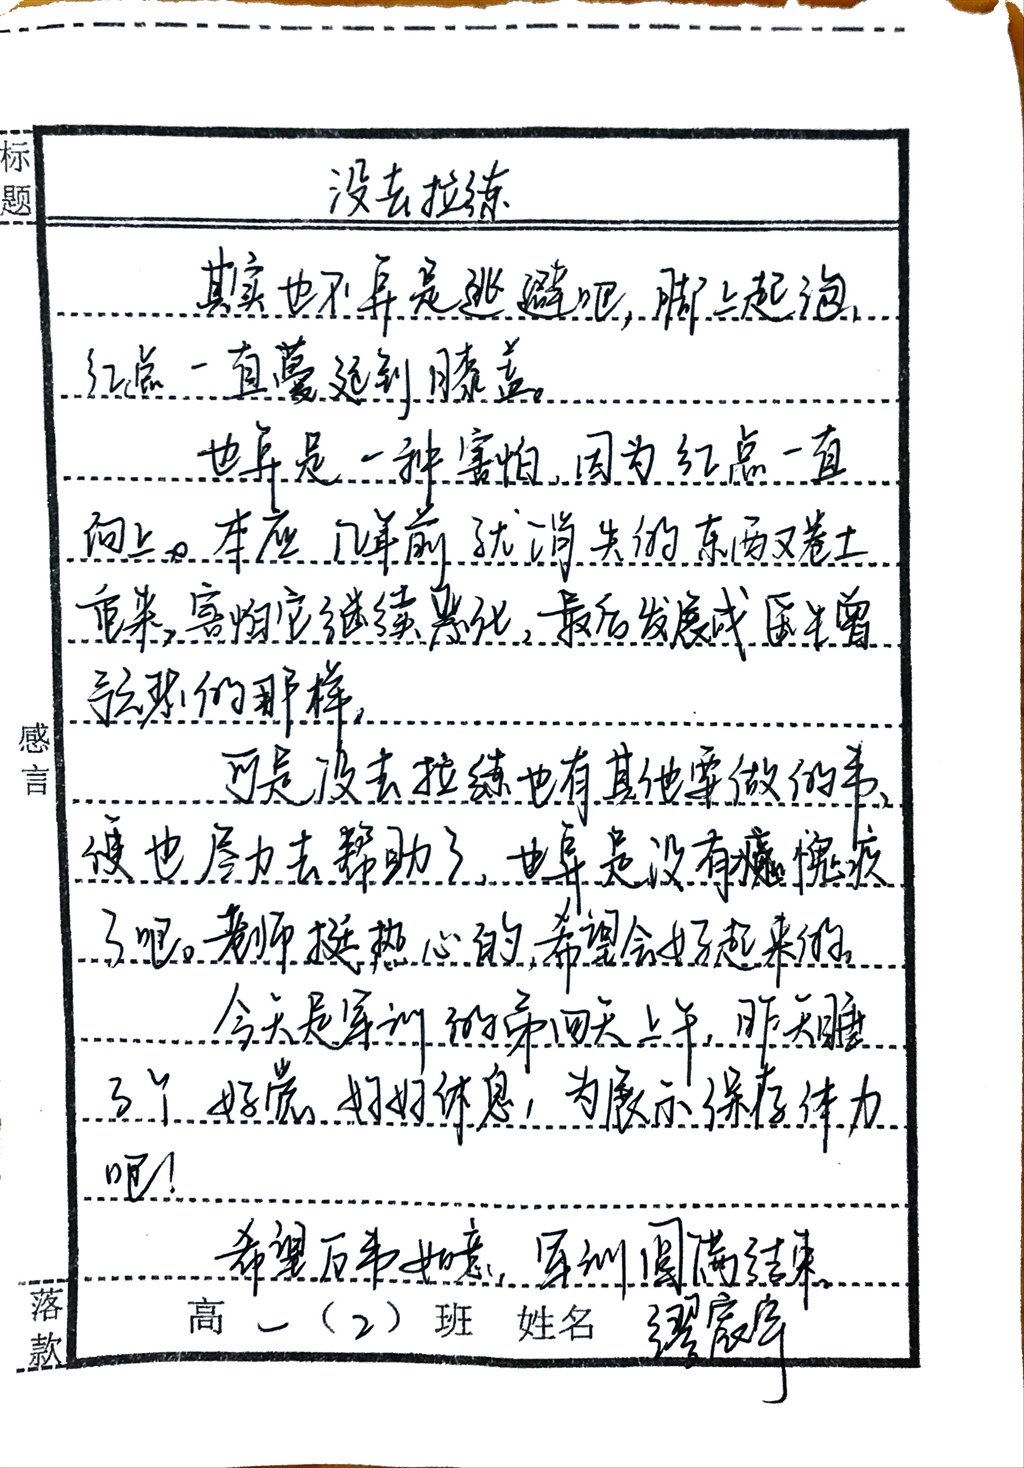 标题
没去拉练
其实也不算是逃避吧，脚上起泡，
红点一直蔓延到膝盖。
也算是一种害怕，因为红点一直
向上。本应几年前就消失的东西又卷土
重来，害怕它继续恶化，最后发展成医生曾
说过的那样，
可是没去拉练也有其他要做的事，
便也尽力去帮助了，也算是没有愧疚
了吧。老师挺热心的，希望会好起来的。
今天是军训的第四天上午，昨天睡
了个好觉，好好休息，为展示保存体力
吧！
希望万事如意，军训圆满结束。
感言
落款
高一（2）班 姓名 缪宸宇